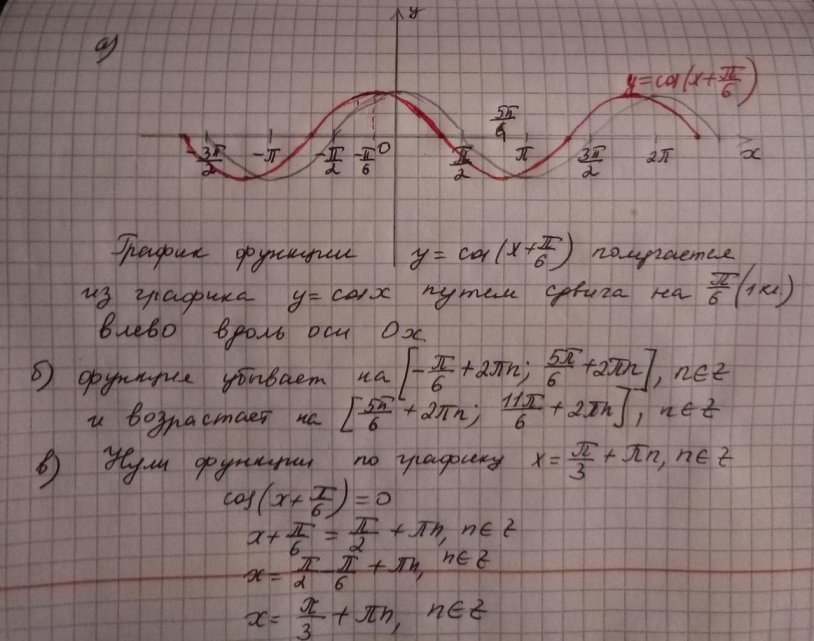 а)
y
y=cos(x+π/6)
5π/6
-3π/2 -π -π/2 -π/6 0 π/2 π 3π/2 2π x
График функции y = cos(x+π/6) получается
из графика y = cosx путем сдвига на π/6 (1 кл.)
влево вдоль оси Ox
б) функция убывает на [-π/6 + 2πn; 5π/6 + 2πn], n∈Z
и возрастает на [5π/6 + 2πn; 11π/6 + 2πn], n∈Z
в) Нули функции по графику x = π/3 + πn, n∈Z
cos(x+π/6) = 0
x + π/6 = π/2 + πn, n∈Z
x = π/2 - π/6 + πn, n∈Z
x = π/3 + πn, n∈Z